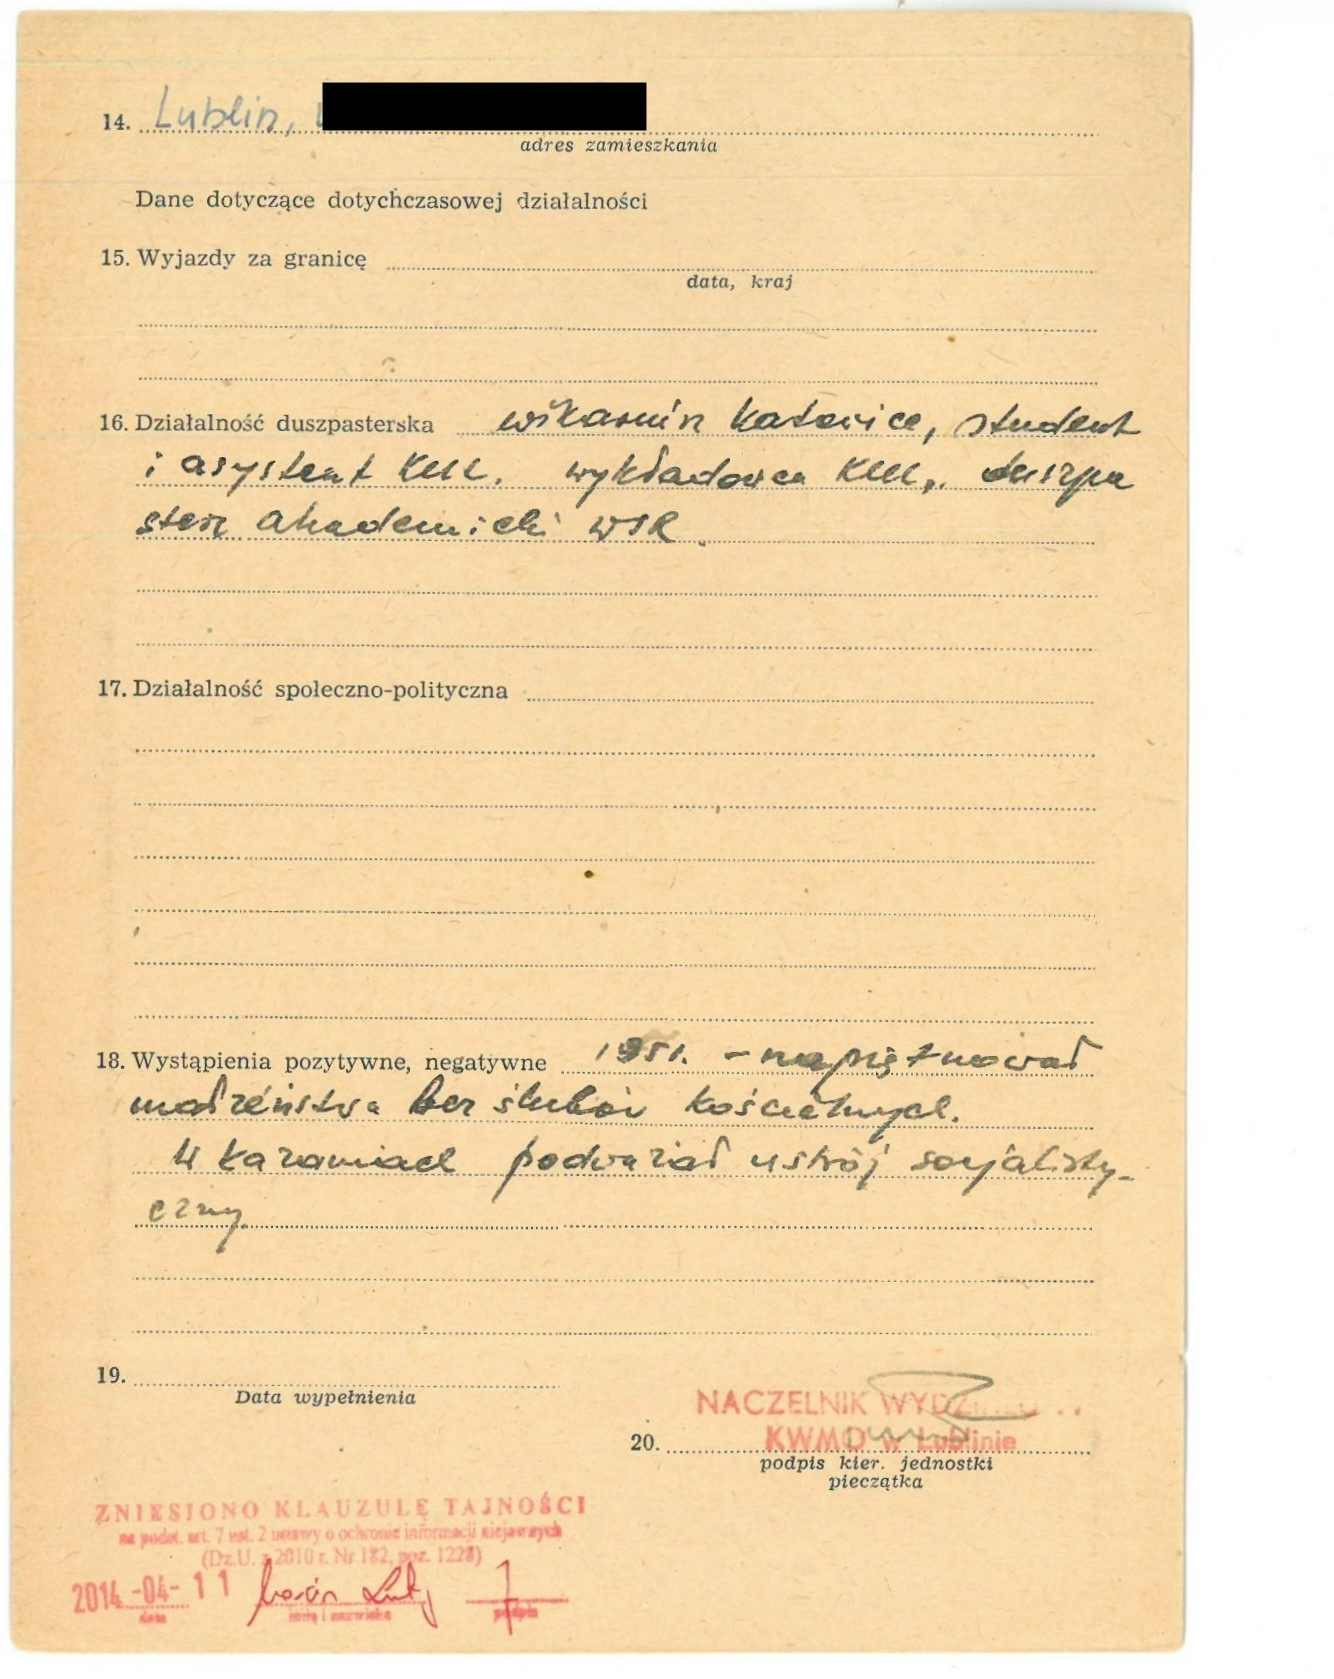 14. Lublin,
adres zamieszkania
Dane dotyczące dotychczasowej działalności
15. Wyjazdy za granicę
data, kraj
16. Działalność duszpasterska wikariusz Katowice, student
i asystent KUL. wykładowca KUL, duszpa
sterz akademicki WSR.
17. Działalność społeczno-polityczna
18. Wystąpienia pozytywne, negatywne 1951. - napiętnował
małżeństwa bez ślubów kościelnych.
W kazaniach podważał ustrój socjalisty-
czny
19.
Data wypełnienia
NACZELNIK WYDZIAŁU
KWMO w Lublinie
20.
podpis kier. jednostki
pieczątka
ZNIESIONO KLAUZULĘ TAJNOŚCI
na podst. art. 7 ust. 2 ustawy o ochronie informacji niejawnych
(Dz.U. z 2010 r. Nr 182, poz. 1228)
2014 -04- 11
data imię i nazwisko podpis